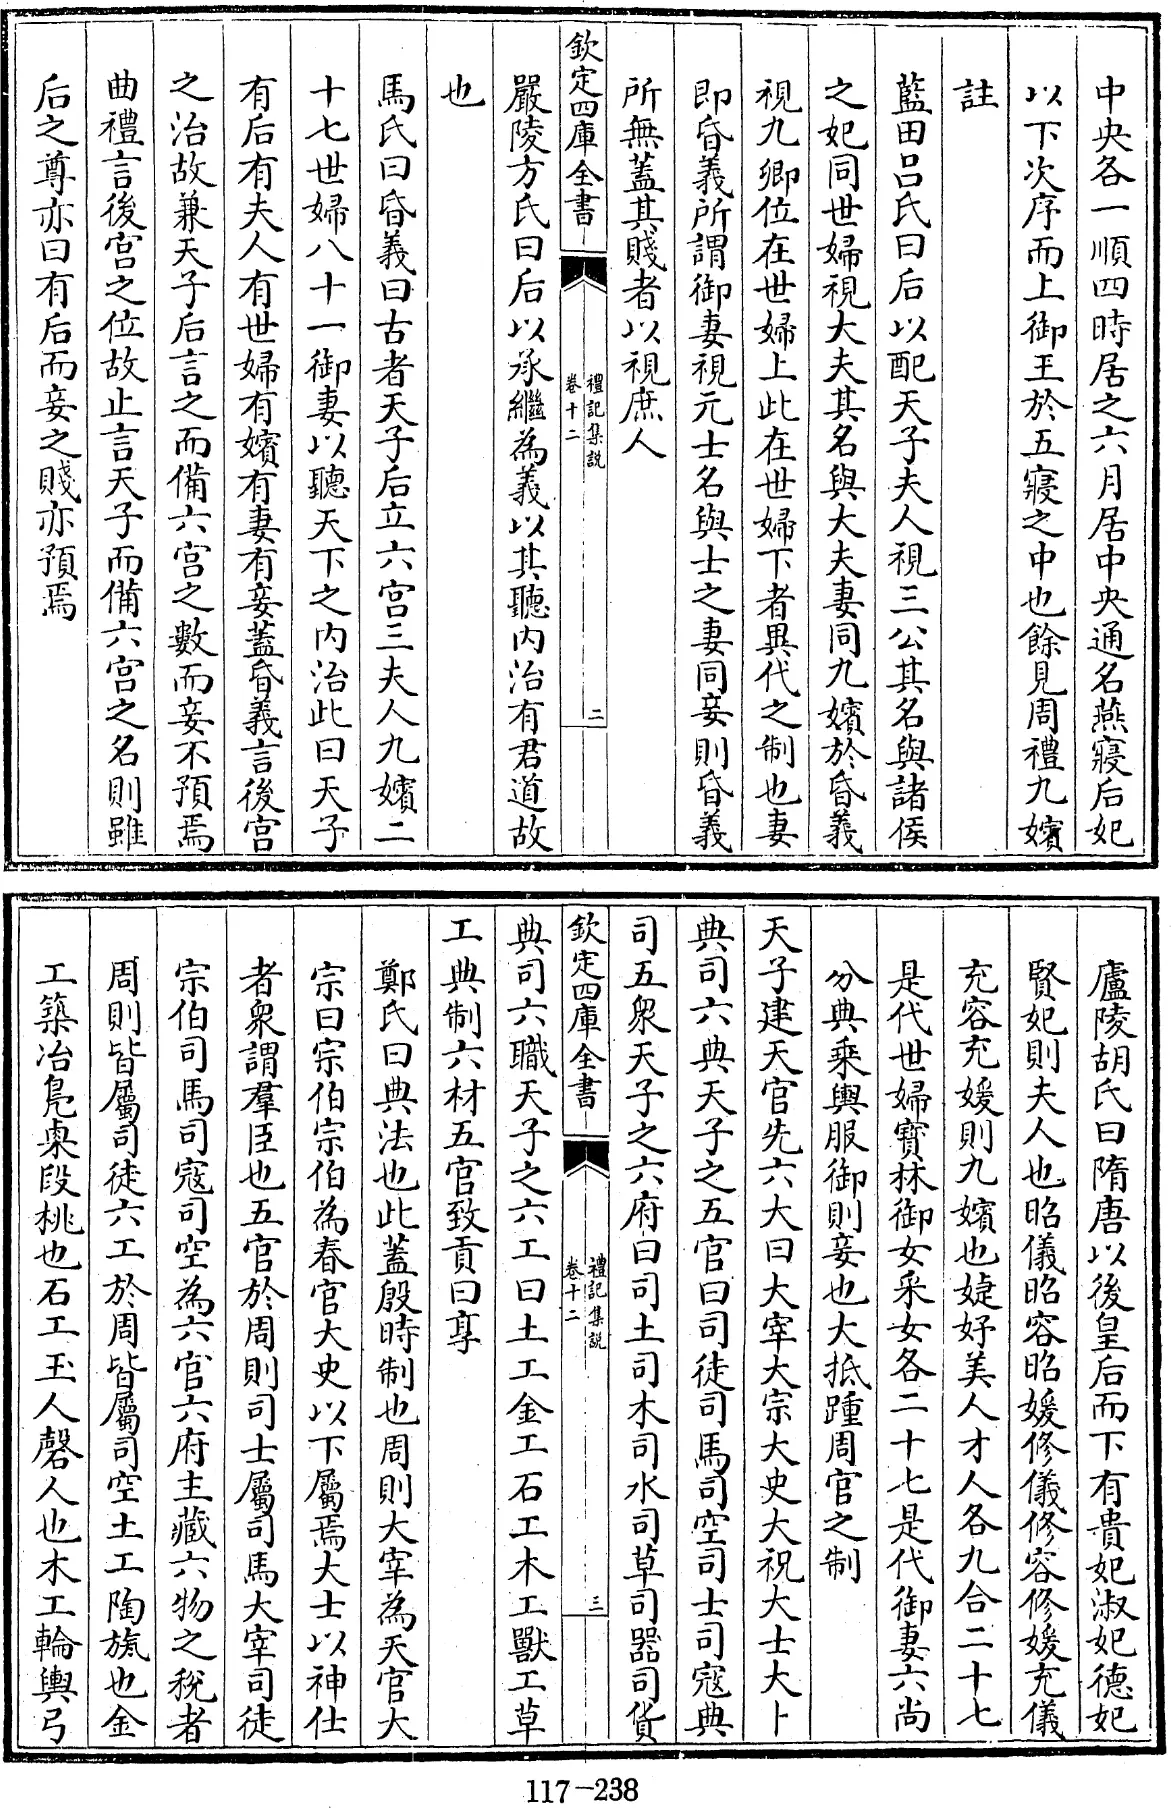 中央各一順四時居之六月居中央通名燕寢后妃
以下次序而上御王於五寢之中也餘見周禮九嬪
註
藍田呂氏曰后以配天子夫人視三公其名與諸侯
之妃同世婦視大夫其名與大夫妻同九嬪於昏義
視九卿位在世婦上此在世婦下者異代之制也妻
即昏義所謂御妻視元士名與士之妻同妾則昏義
所無蓋其賤者以視庶人
欽定四庫全書
禮記集說
卷十二
二
嚴陵方氏曰后以承繼為義以其聽内治有君道故
也
馬氏曰昏義曰古者天子后立六宫三夫人九嬪二
十七世婦八十一御妻以聽天下之内治此曰天子
有后有夫人有世婦有嬪有妻有妾蓋昏義言後宫
之治故兼天子后言之而備六宫之數而妾不預焉
曲禮言後宫之位故止言天子而備六宫之名則雖
后之尊亦曰有后而妾之賤亦預焉
盧陵胡氏曰隋唐以後皇后而下有貴妃淑妃德妃
賢妃則夫人也昭儀昭容昭媛修儀修容修媛充儀
充容充媛則九嬪也婕妤美人才人各九合二十七
是代世婦寳林御女采女各二十七是代御妻六尚
分典乘輿服御則妾也大抵踵周官之制
天子建天官先六大曰大宰大宗大史大祝大士大卜
典司六典天子之五官曰司徒司馬司空司士司寇典
司五衆天子之六府曰司土司木司水司草司器司貨
欽定四庫全書
禮記集說
卷十二
三
典司六職天子之六工曰土工金工石工木工獸工草
工典制六材五官致貢曰享
鄭氏曰典法也此蓋殷時制也周則大宰為天官大
宗曰宗伯宗伯為春官大史以下屬焉大士以神仕
者衆謂羣臣也五官於周則司士屬司馬大宰司徒
宗伯司馬司寇司空為六官六府主藏六物之稅者
周則皆屬司徒六工於周皆屬司空土工陶旊也金
工築冶鳬㮚段桃也石工玉人磬人也木工輪輿弓
117-238